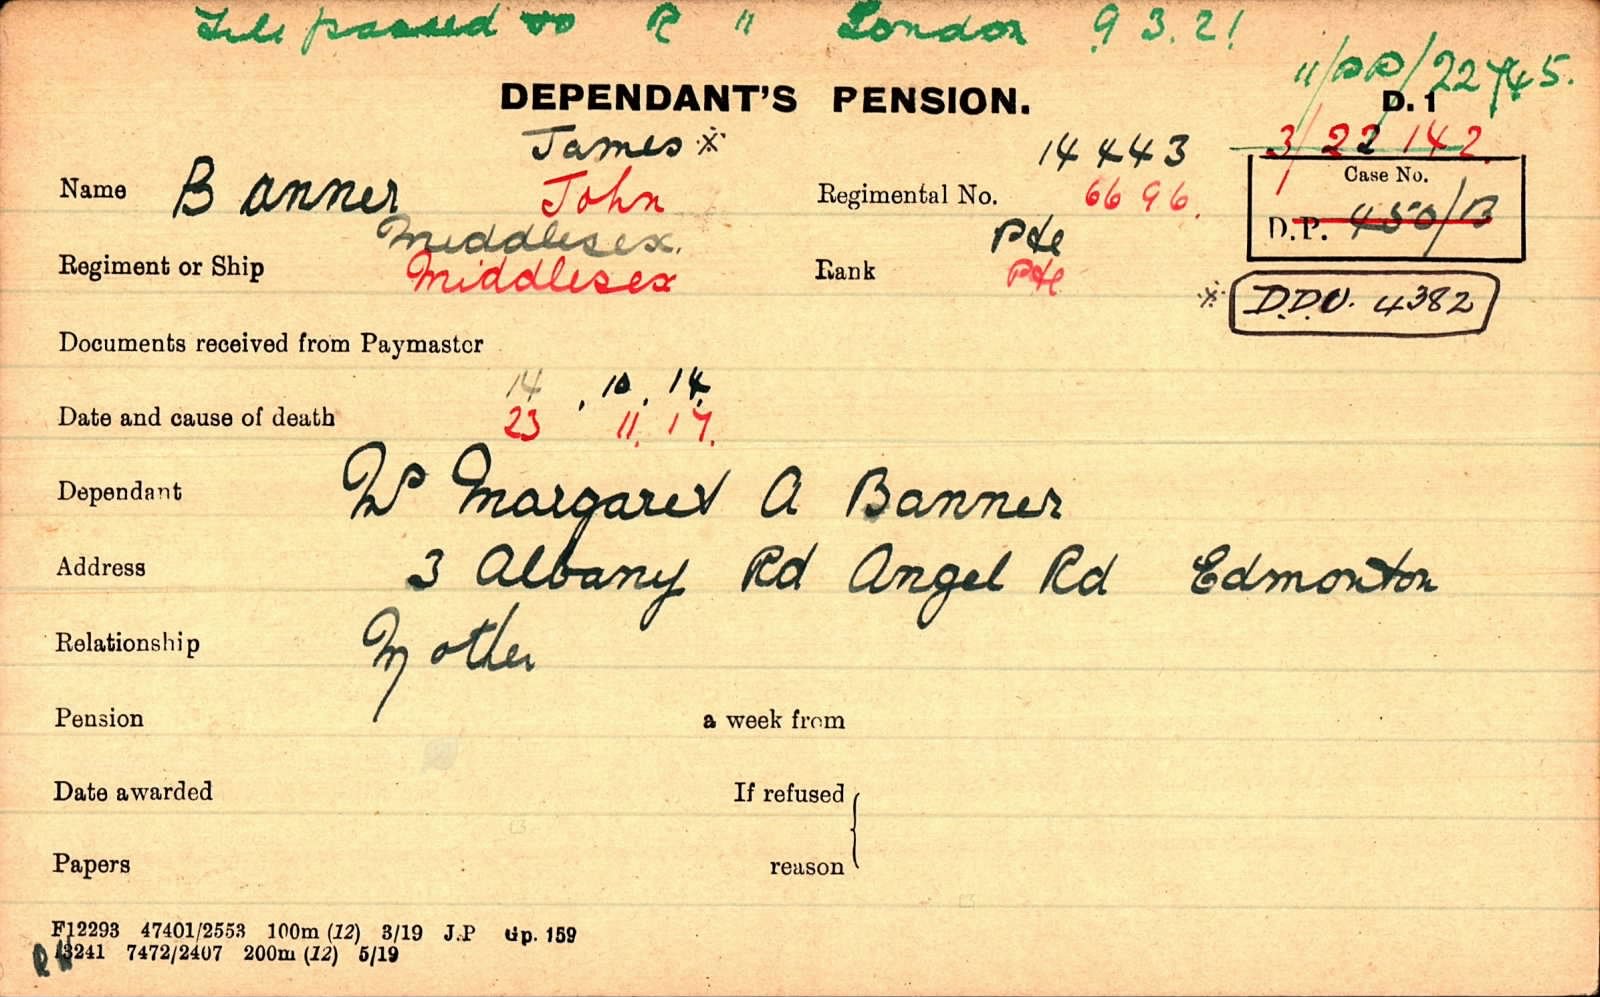 File passed to R " London 9 3. 21
11/DP/22745.
DEPENDANT'S PENSION.
D. 1
3/22 142.
James※
14443
Case No.
Name Banner John
Regimental No. 6696.
D.P. 450/B
Middlesex.
Pte
Regiment or Ship Middlesex
Rank Pte
※ D.D.V. 4382
Documents received from Paymaster
14 . 10 . 14.
Date and cause of death 23 11. 17.
Dependant Ms Margaret A Banner
Address 3 Albany Rd Angel Rd Edmonton
Relationship Mother
Pension a week from
Date awarded If refused
Papers reason
F12293 47401/2553 100m (12) 3/19 J.P Gp. 159
13241 7472/2407 200m (12) 5/19